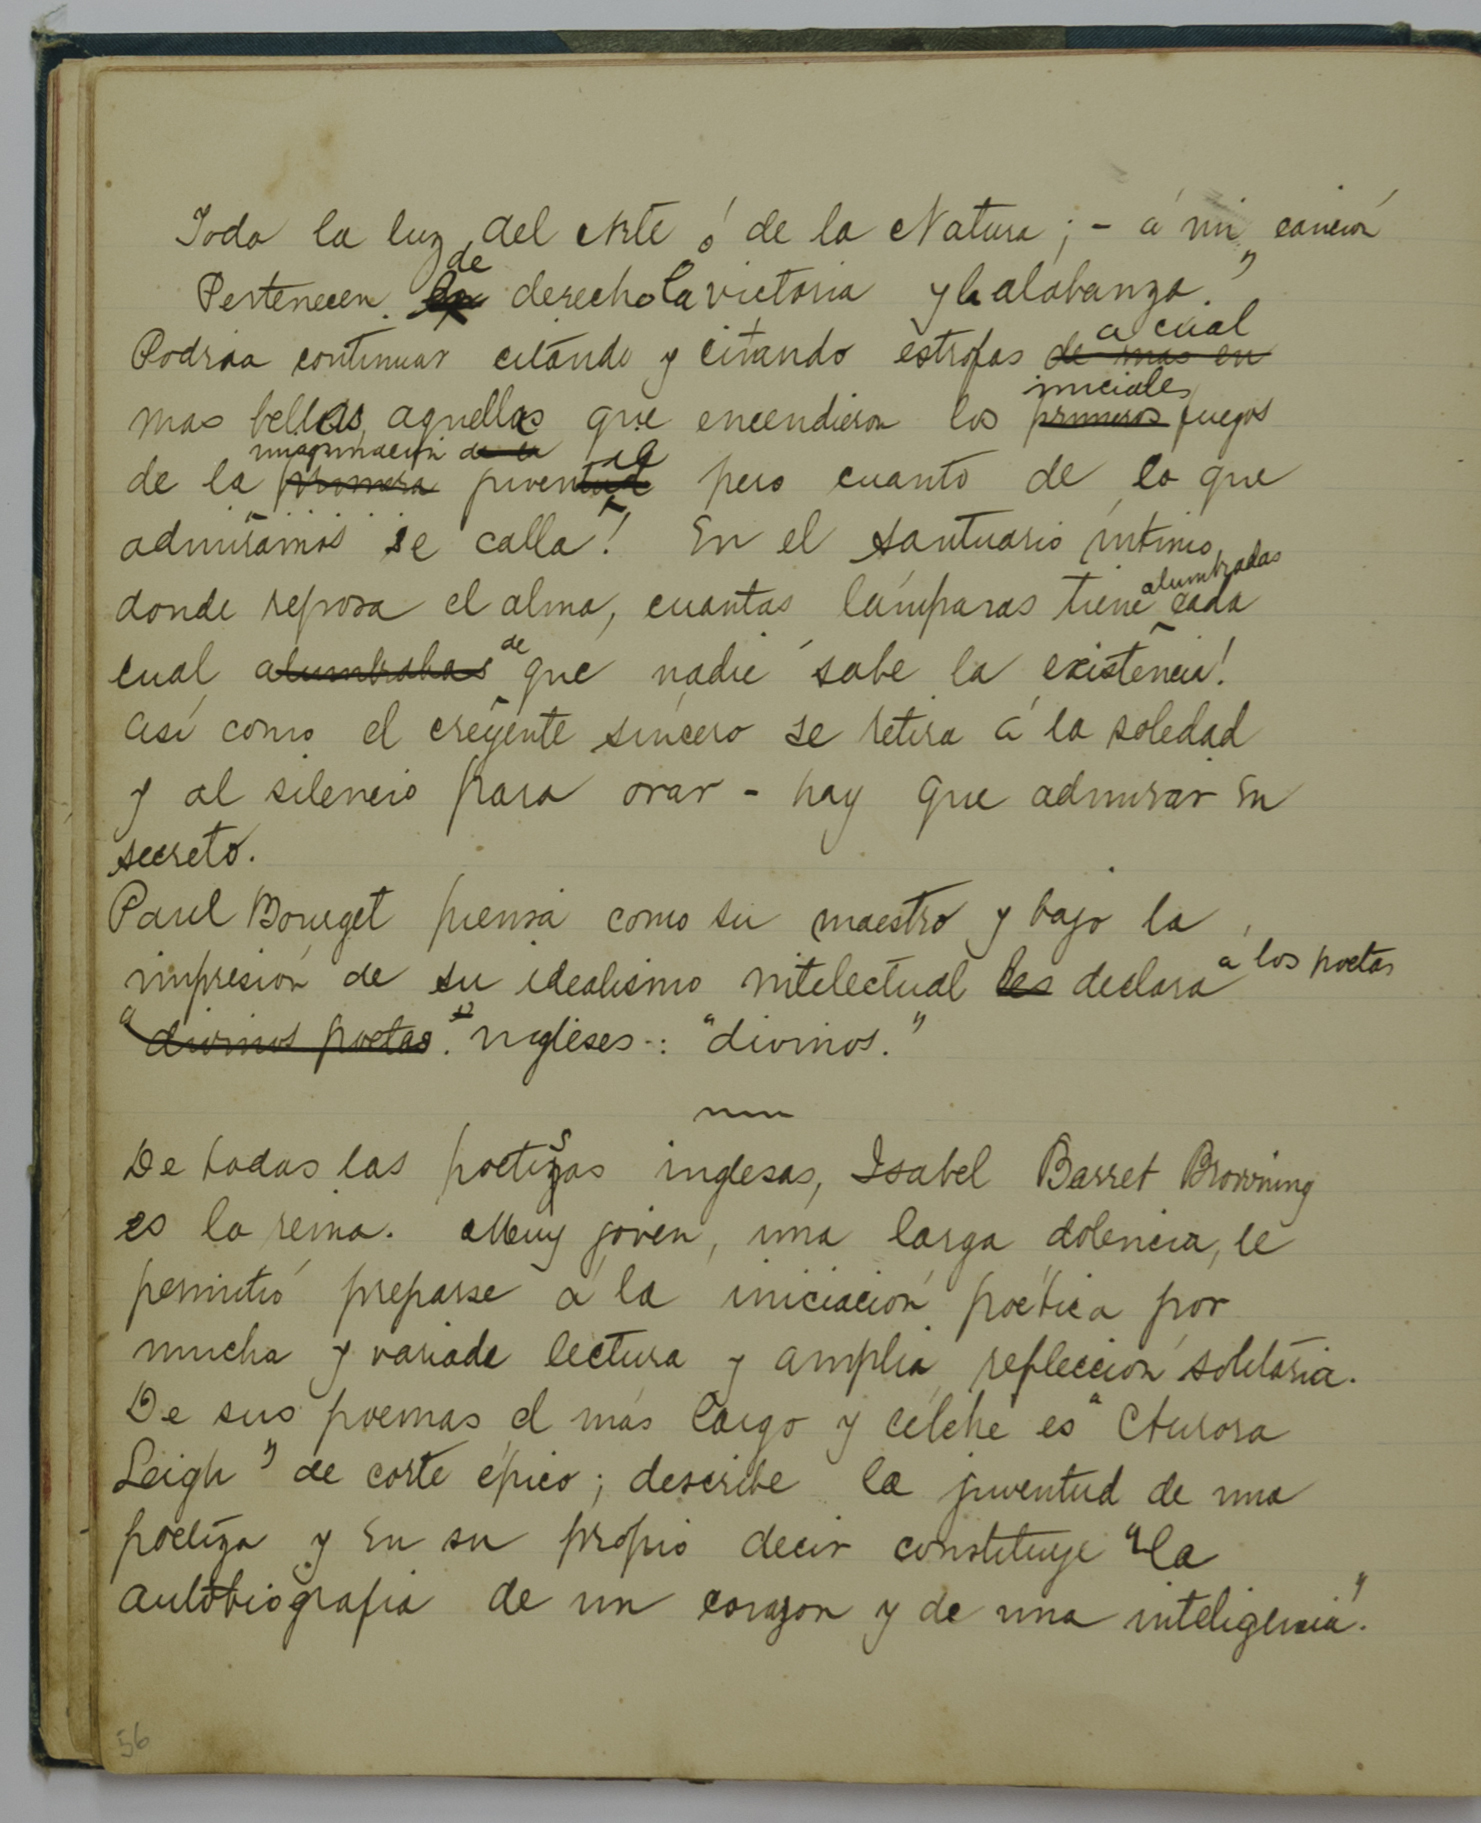 Toda la luz del Arte ó de la Natura; - á mi canción
Pertenecen de derecho la victoria y la alabanza."
Podria continuar citando y citando estrofas de mas en a cual
mas bellas, aquellas que encendieron los primeros iniciales fuegos
de la primera imaginacion de la juventud pero cuanto de lo que
admiramos se calla! En el santuario íntimo,
donde reposa el alma, cuantas lámparas tiene alumbradas cada
cual alumbrabas de que nadie sabe la existencia!
Así como el creyente sincero se retira á la soledad
y al silencio para orar - hay que admirar en
secreto.
Paul Bourget piensa como su maestro y bajo la
impresión de su idealismo intelectual les declara a los poetas
"divinos poetas." ingleses: "divinos."
De todas las poetisas inglesas, Isabel Barret Browning
es la reina. Muy joven, una larga dolencia, le
permitió preparse á la iniciación poética por
mucha y variada lectura y amplia refleccion solitaria.
De sus poemas el más largo y célebre es "Aurora
Leigh" de corte épico; describe la juventud de una
poetiza y en su propio decir constituye "la
autobiografia de un corazon y de una inteligencia."
56